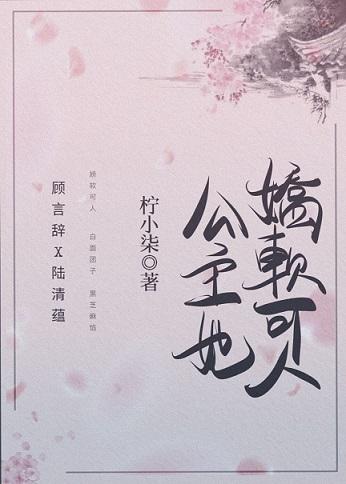 公主她
嬌軟可人
柠小柒◎著
娇软可人 白面团子 黑芝麻馅
顾言辞X陆清蕴